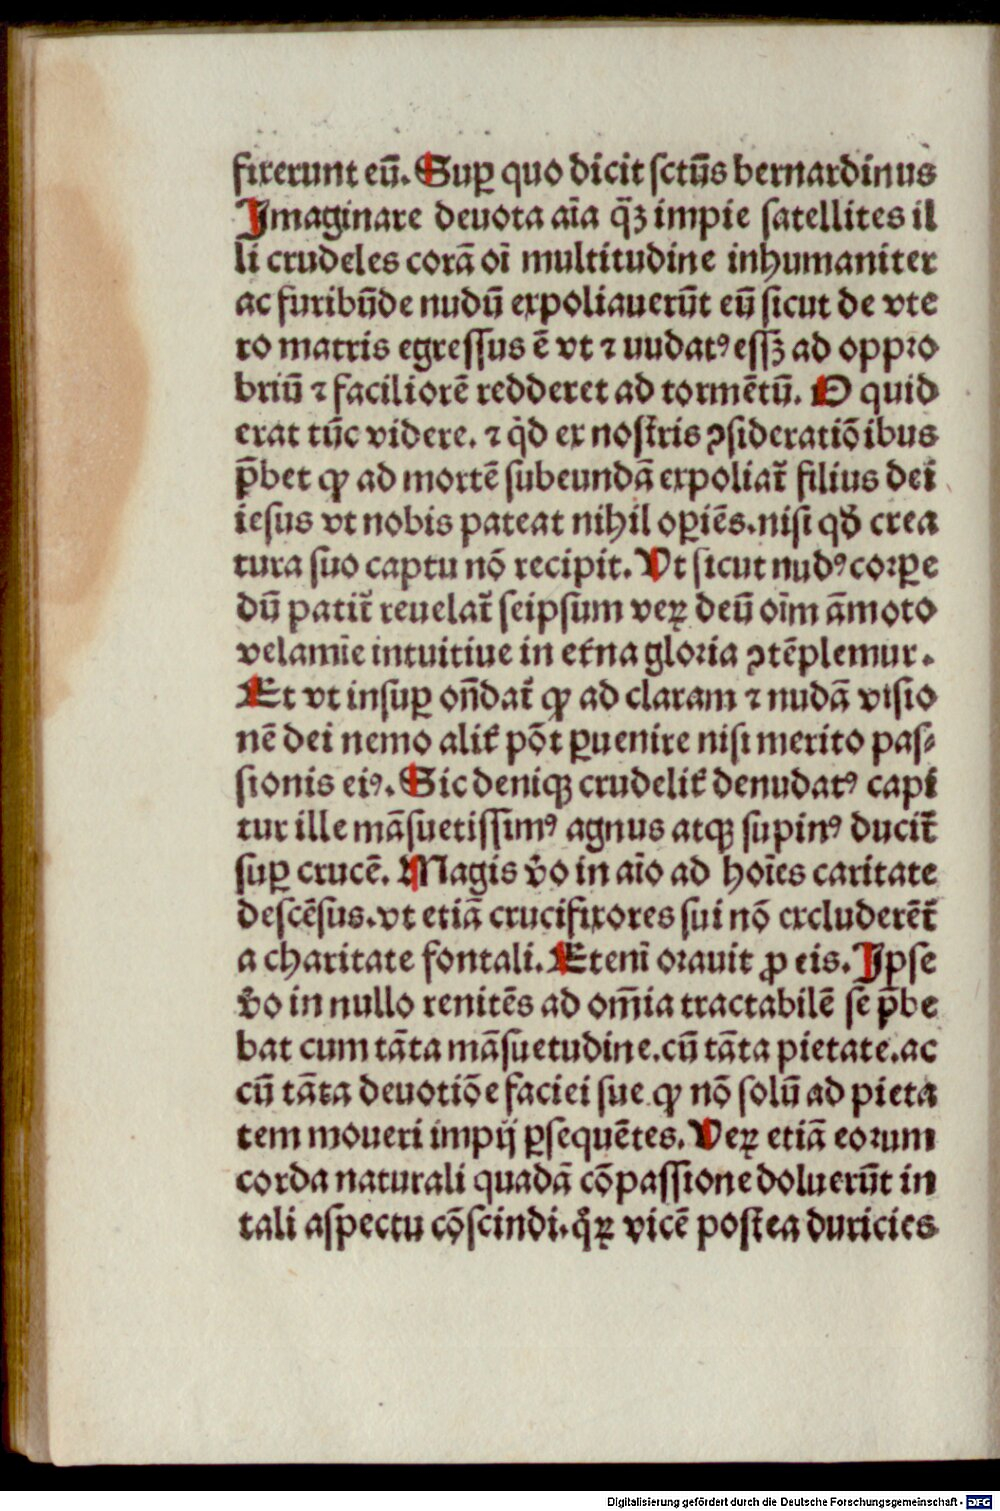 fixerunt eū. Suꝑ quo dicit sctūs bernardinus
Imaginare deuota aīa q̄ꝫ impie satellites il
li crudeles corā oī multitudine inhumaniter
ac furibūde nudū expoliauerūt eū sicut de vte
ro matris egressus ē vt ⁊ uudatꝰ essꝫ ad oppꝛo
briū ⁊ faciliorē redderet ad tormētū. O quid
erat tūc videre. ⁊ qͥd ex nostris ꝯsideratiōibus
p̄bet ꝙ ad mortē subeundā expoliat᷑ filius dei
iesus vt nobis pateat nihil oꝑiēs. nisi qđ crea
tura suo captu nō recipit. Vt sicut nudꝰ coꝛꝑe
dū patit᷑ reuelat᷑ seipsum veꝝ deū oīm āmoto
velamīe intuitiue in et̄na gloꝛia ꝯtēplemur.
Et vt insuꝑ on̄dat᷑ ꝙ ad claram ⁊ nudā visio
nē dei nemo alit̄ pōt ꝑuenire nisi merito pas⸗
sionis eiꝰ. Sic deniqꝫ crudelit̄ denudatꝰ capi
tur ille māsuetissimꝰ agnus atqꝫ supinꝰ ducit᷑
suꝑ crucē. Magis v̊o in aīo ad hoīes caritate
descēsus. vt etiā crucifixores sui nō excluderēt᷑
a charitate fontali. Etenī oꝛauit ꝓ eis. Ipse
v̊o in nullo renitēs ad om̄ia tractabilē se p̄be
bat cum tāta māsuetudine. cū tāta pietate. ac
cū tāta deuotiōe faciei sue ꝙ nō solū ad pieta
tem moueri impij ꝑsequētes. Veꝝ etiā eoꝛum
corda naturali quadā cōpassione doluerūt in
tali aspectu cōscindi. qͣꝝ vicē postea duricies
Digitalisierung gefördert durch die Deutsche Forschungsgemeinschaft - DFG